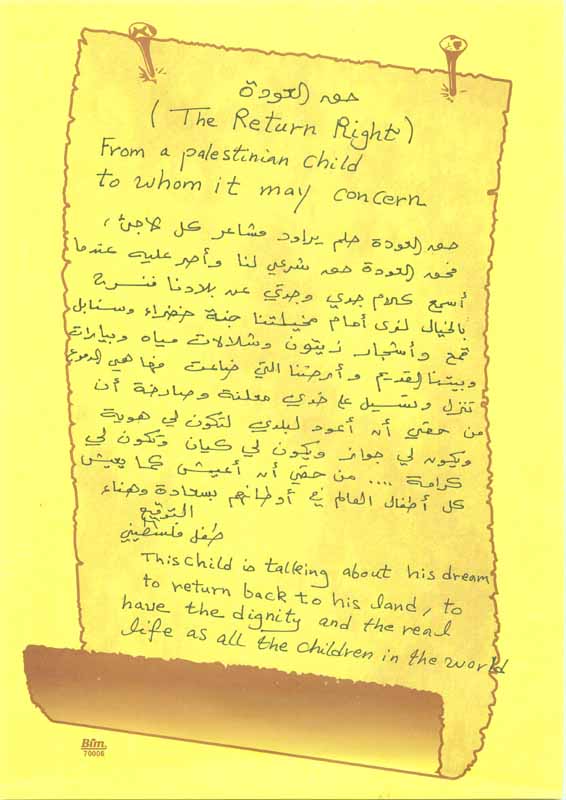 حق العودة
( The Return Right )
From a palestinian child
to whom it may concern
حق العودة حلم يراود مشاعر كل لاجئ ،
فحق العودة حق شرعي لنا وأصر عليه عندما
أسمع كلام جدي وجدتي عن بلادنا فنسرح
بالخيال لنرى أمام مخيلتنا جنة خضراء وسنابل
قمح وأشجار زيتون وشلالات مياه وبيارات
وبيتنا القديم وأرضنا التي ضاعت فها هي الدموع
تنزل وتسيل على خدي معلنة وصارخة أن
من حقي أن أعود لبلدي لتكون لي هوية
ويكون لي جواز ويكون لي كيان وتكون لي
كرامة .... من حقي أن أعيش كما يعيش
كل أطفال العالم في أوطانهم بسعادة وهناء
التوقيع
طفل فلسطيني
This child is talking about his dream
to return back to his land, to
have the dignity and the real
life as all the children in the world
Bim
70006